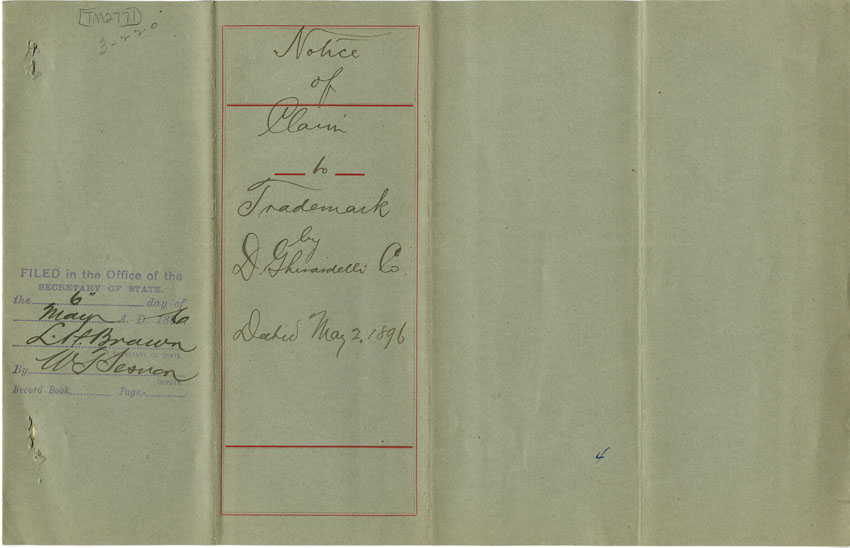 TM2771
3-220
Notice
of
Claim
to
Trademark
by
D. Ghirardelli Co.
Dated May 2, 1896
FILED in the Office of the
SECRETARY OF STATE.
the 6" day of
May A. D. 1896
L. H. Brown
SECRETARY OF STATE.
By W T Sesnon
DEPUTY.
Record Book, Page,
4